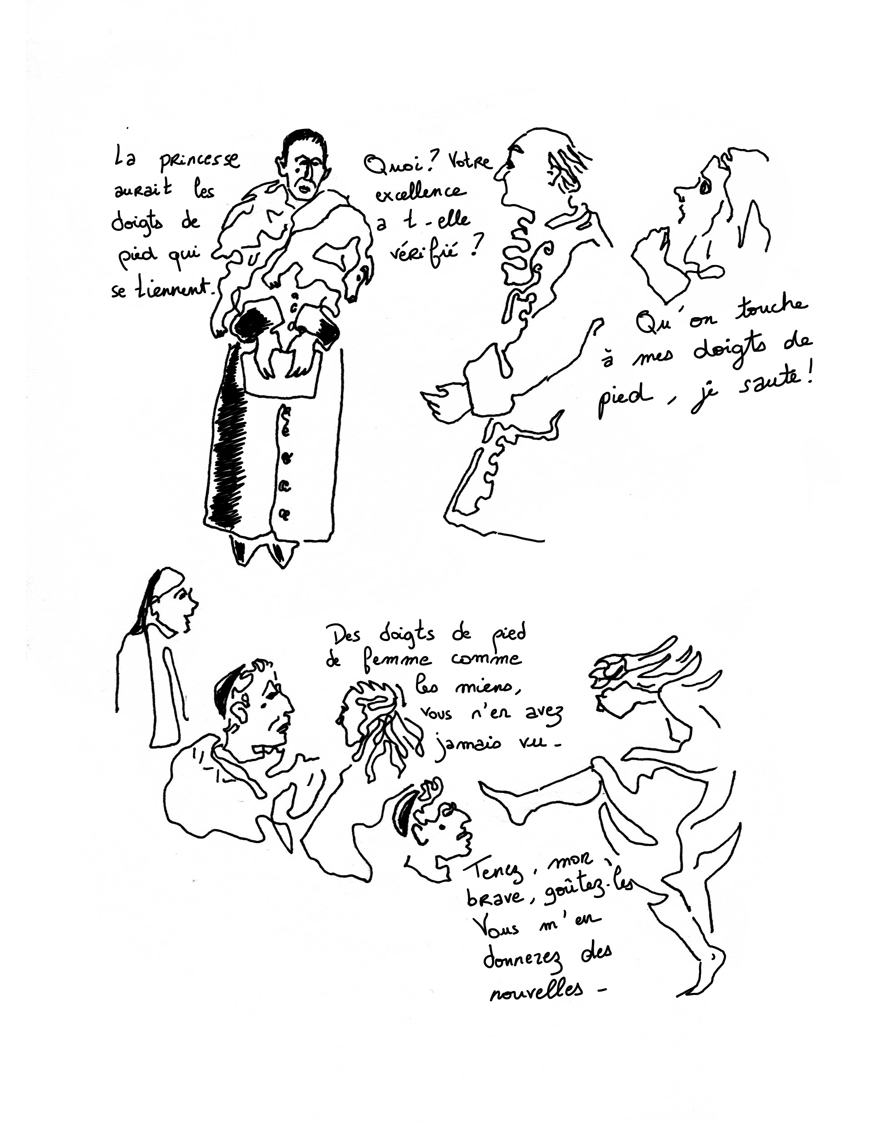 La princesse
aurait les
doigts de
pied qui
se tiennent.
Quoi? Votre
excellence
a t-elle
vérifié ?
Qu'on touche
à mes doigts de
pied, je saute!
Des doigts de pied
de femme comme
les miens,
vous n'en avez
jamais vu -
Tenez, mon
brave, goûtez-les
Vous m'en
donnerez des
nouvelles -